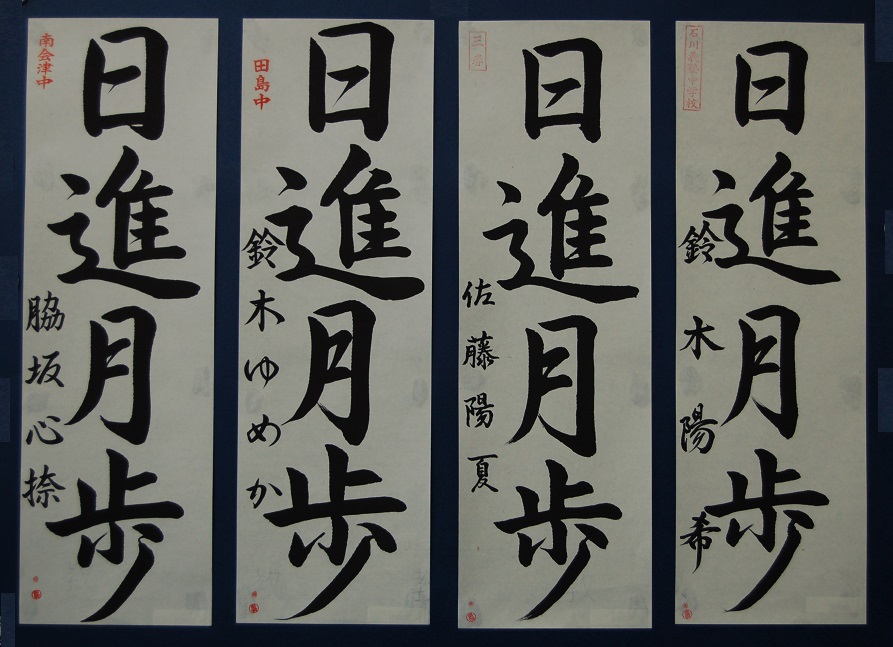 日進月歩
石川義塾中学校
鈴木陽希
日進月歩
三春
佐藤陽夏
日進月歩
田島中
鈴木ゆめか
日進月歩
南会津中
脇坂心捺